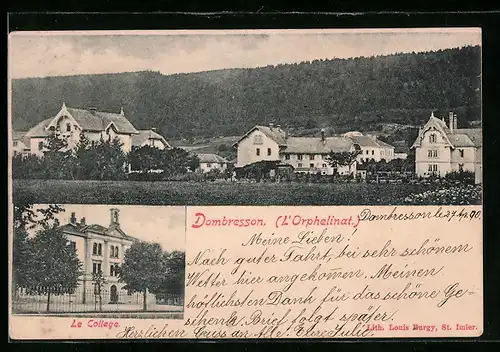 Dombresson. (L'Orphelinat.)
Dombresson le 27/4 20.
Meine Lieben.
Nach guter Fahrt, bei sehr schönem
Wetter hier angekommen. Meinen
höflichsten Dank für das schöne Ge-
schenk. Brief folgt später.
Herzlichen Gruss an Alle. Eure Julie.
Lith. Louis Burgy, St. Imier.
Le College.